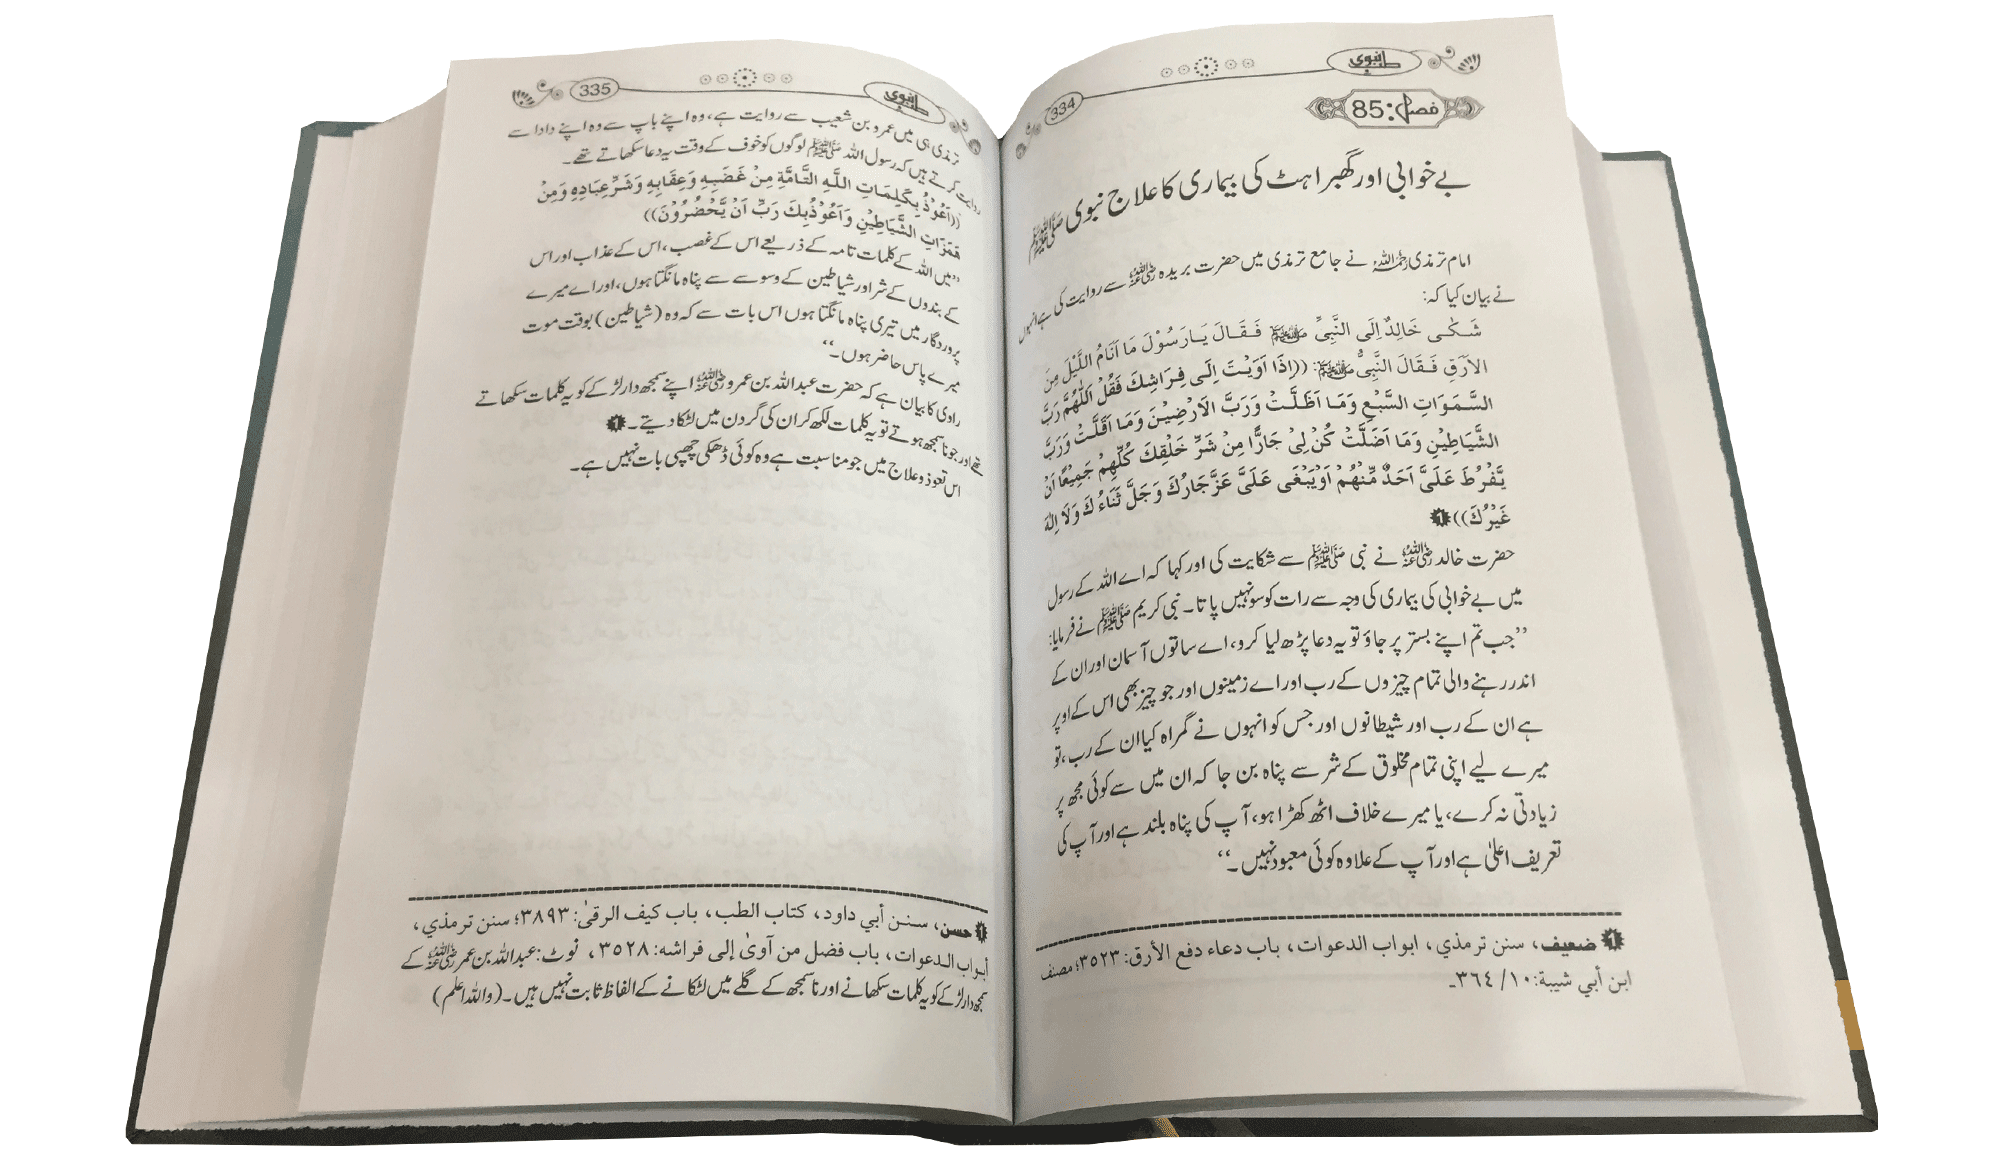 طب نبوی
334
فصل: 85
بے خوابی اور گھبراہٹ کی بیماری کا علاج نبوی ﷺ
امام ترمذی رحمہ اللہ نے جامع ترمذی میں حضرت بریدہ رضی اللہ عنہ سے روایت کی ہے انہوں
نے بیان کیا کہ:
شَكٰى خَالِدٌ اِلَى النَّبِىِّ ﷺ فَقَالَ يَارَسُوْلَ مَا اَنَامُ اللَّيْلَ مِنَ
الاَرَقِ فَقَالَ النَّبِىُّ ﷺ: ((اِذَا اَوَيْتَ اِلَى فِرَاشِكَ فَقُلْ اَللّٰهُمَّ رَبَّ
السَّمَوَاتِ السَّبْعِ وَمَا اَظَلَّتْ وَرَبَّ الاَرْضِيْنَ وَمَا اَقَلَّتْ وَرَبَّ
الشَّيَاطِيْنِ وَمَا اَضَلَّتْ كُنْ لِىْ جَارًا مِنْ شَرِّ خَلْقِكَ كُلِّهِمْ جَمِيْعًا اَنْ
يَّفْرُطَ عَلَىَّ اَحَدٌ مِّنْهُمْ اَوْيَبْغَى عَلَىَّ عَزَّجَارُكَ وَجَلَّ ثَنَاءُكَ وَلَا اِلٰهَ
غَيْرُكَ)) 1
حضرت خالد رضی اللہ عنہ نے نبی ﷺ سے شکایت کی اور کہا کہ اے اللہ کے رسول
میں بے خوابی کی بیماری کی وجہ سے رات کو سو نہیں پاتا۔ نبی کریم ﷺ نے فرمایا:
’’جب تم اپنے بستر پر جاؤ تو یہ دعا پڑھ لیا کرو، اے ساتوں آسمان اور ان کے
اندر رہنے والی تمام چیزوں کے رب اور اے زمینوں اور جو چیز بھی اس کے اوپر
ہے ان کے رب اور شیطانوں اور جس کو انہوں نے گمراہ کیا ان کے رب، تو
میرے لیے اپنی تمام مخلوق کے شر سے پناہ بن جا کہ ان میں سے کوئی مجھ پر
زیادتی نہ کرے، یا میرے خلاف اٹھ کھڑا ہو، آپ کی پناہ بلند ہے اور آپ کی
تعریف اعلیٰ ہے اور آپ کے علاوہ کوئی معبود نہیں۔‘‘
1 ضعيف، سنن ترمذي، ابواب الدعوات، باب دعاء دفع الأرق: ٣٥٢٣؛ مصنف
ابن أبي شيبة: ١٠/ ٣٦٤۔
طب نبوی
335
ترمذی ہی میں عمرو بن شعیب سے روایت ہے، وہ اپنے باپ سے وہ اپنے دادا سے
روایت کرتے ہیں کہ رسول اللہ ﷺ لوگوں کو خوف کے وقت یہ دعا سکھاتے تھے۔
((اَعُوْذُ بِكَلِمَاتِ اللّٰهِ التَّامَّةِ مِنْ غَضَبِهِ وَعِقَابِهِ وَشَرِّعِبَادِهِ وَمِنْ
هَمَزَاتِ الشَّيَاطِيْنِ وَاَعُوْذُبِكَ رَبِّ اَنْ يَّحْضُرُوْنَ))
’’میں اللہ کے کلمات تامہ کے ذریعے اس کے غضب، اس کے عذاب اور اس
کے بندوں کے شر اور شیاطین کے وسوسے سے پناہ مانگتا ہوں، اور اے میرے
پروردگار میں تیری پناہ مانگتا ہوں اس بات سے کہ وہ (شیاطین) بوقت موت
میرے پاس حاضر ہوں۔‘‘
راوی کا بیان ہے کہ حضرت عبداللہ بن عمرو رضی اللہ عنہ اپنے سمجھ دار لڑکے کو یہ کلمات سکھاتے
تھے اور جو نا سمجھ ہوتے تو یہ کلمات لکھ کر ان کی گردن میں لٹکا دیتے۔ 1
اس تعوذ و علاج میں جو مناسبت ہے وہ کوئی ڈھکی چھپی بات نہیں ہے۔
1 حسن، سنن أبي داود، كتاب الطب، باب كيف الرقىٰ: ٣٨٩٣؛ سنن ترمذي،
أبواب الدعوات، باب فضل من آوىٰ إلى فراشه: ٣٥٢٨، نوٹ: عبداللہ بن عمر رضی اللہ عنہ کے
سمجھ دار لڑکے کو یہ کلمات سکھانے اور نا سمجھ کے گلے میں لٹکانے کے الفاظ ثابت نہیں ہیں۔ (واللہ اعلم)